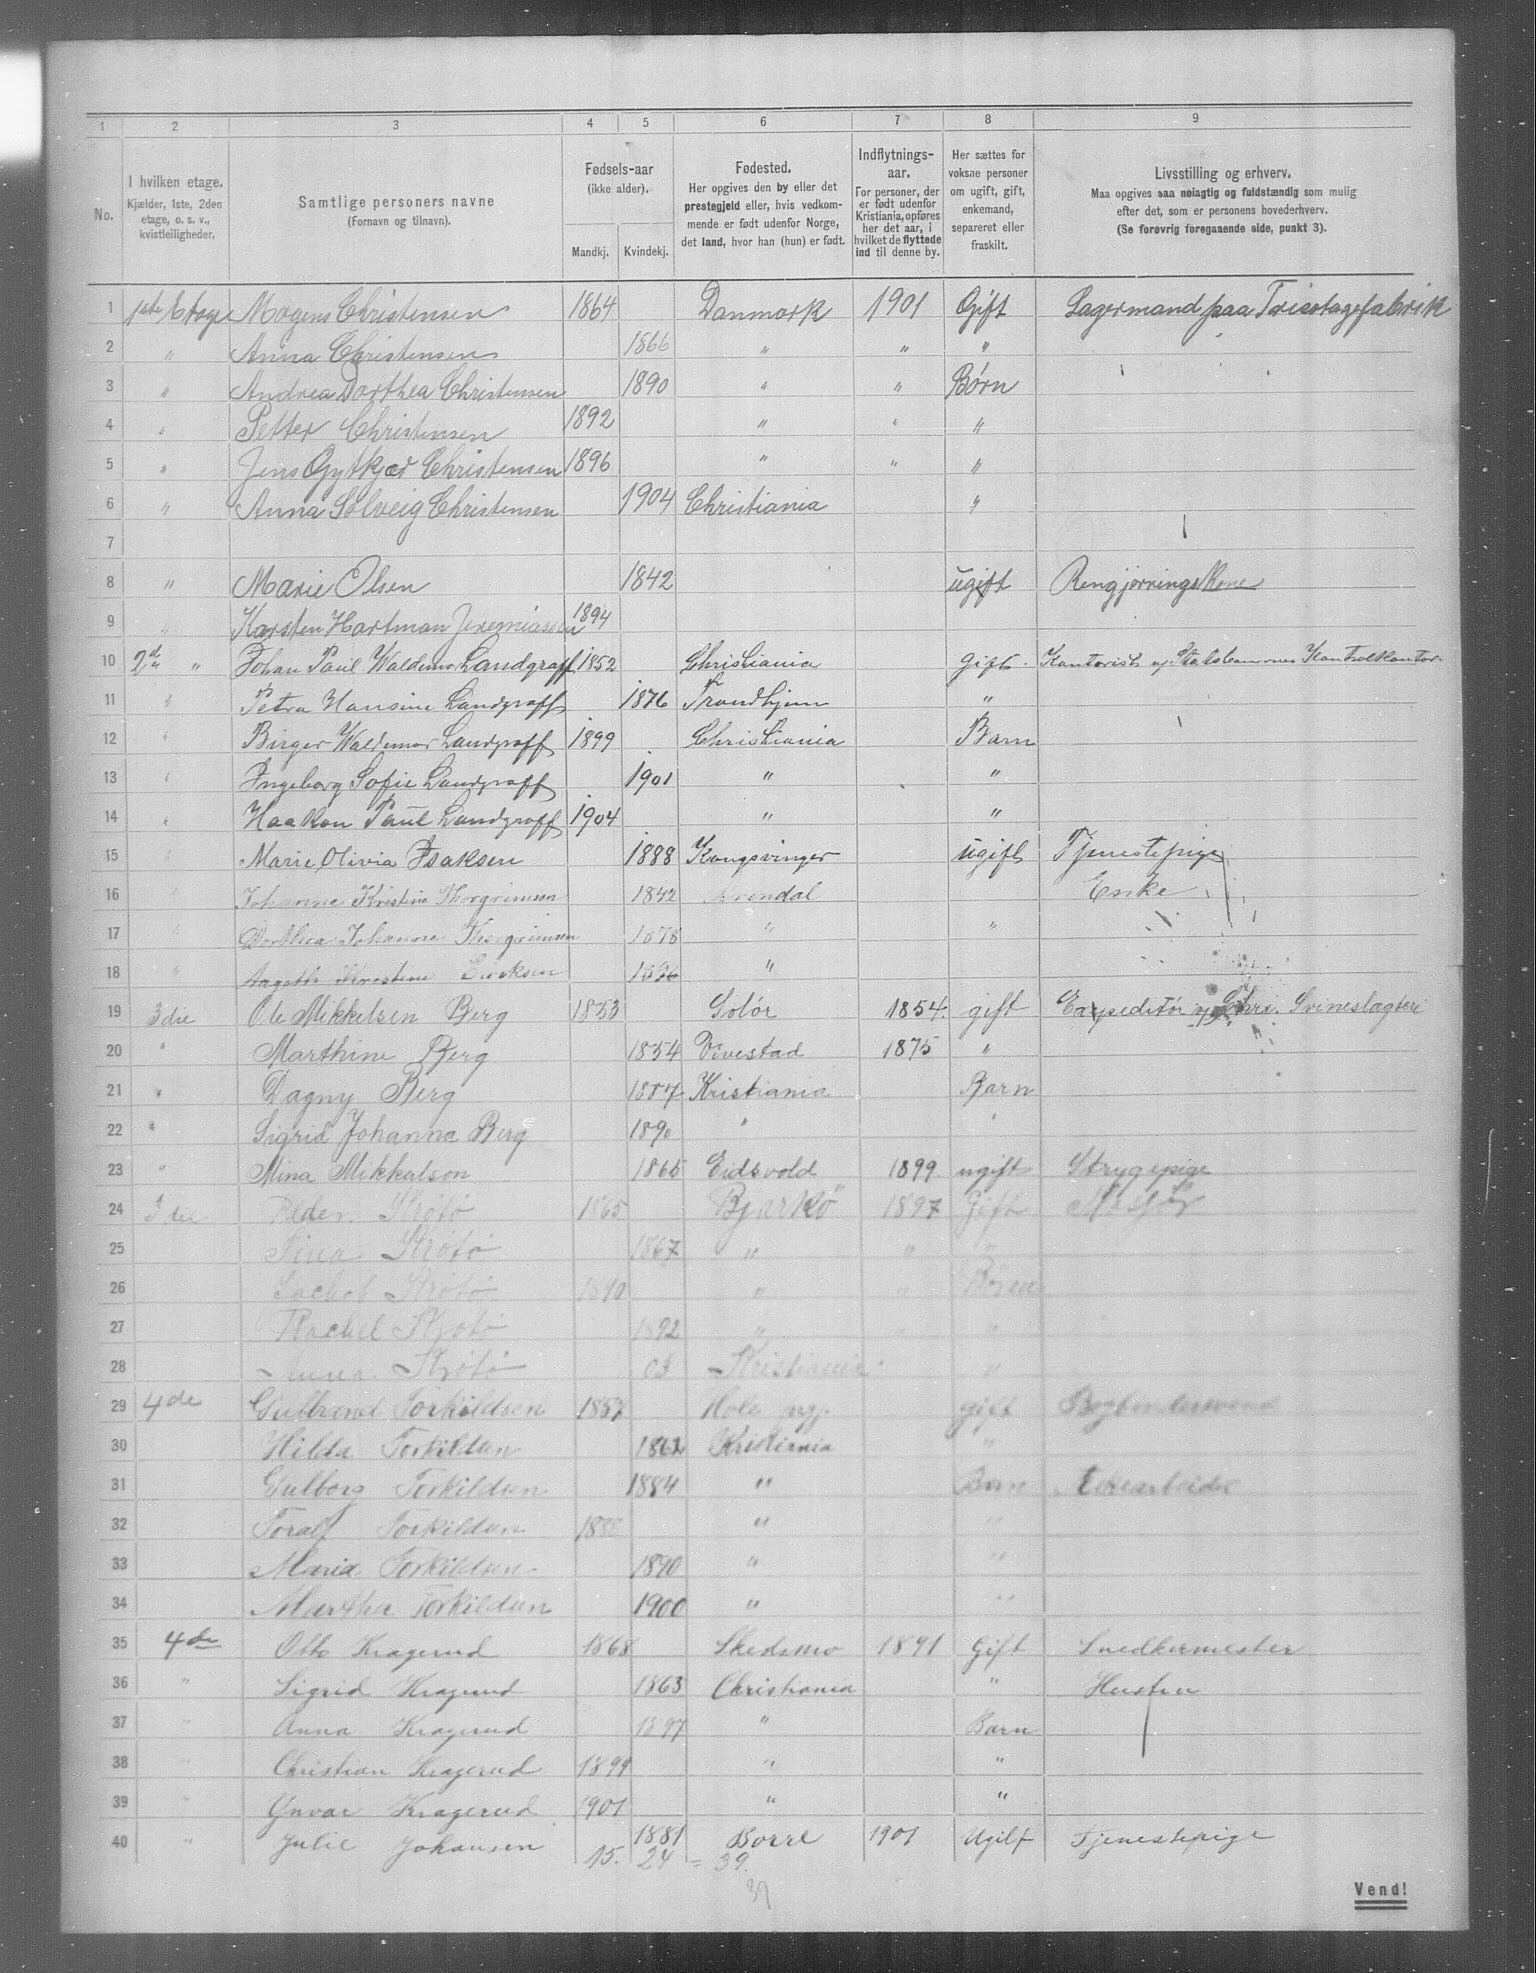 1 2 3 4 5 6 7 8 9
No.
I hvilken etage.
Kjælder, 1ste, 2den
etage, o. s. v.,
kvistleiligheder.
Samtlige personers navne
(Fornavn og tilnavn).
Fødsels-aar
(ikke alder).
Mandkj. Kvindekj.
Fødested.
Her opgives den by eller det
prestegjeld eller, hvis vedkom-
mende er født udenfor Norge,
det land, hvor han (hun) er født.
Indflytnings-
aar.
For personer, der
er født udenfor
Kristiania, opføres
her det aar, i
hvilket de flyttede
ind til denne by.
Her sættes for
voksne personer
om ugift, gift,
enkemand,
separeret eller
fraskilt.
Livsstilling og erhverv.
Maa opgives saa nøiagtig og fuldstændig som mulig
efter det, som er personens hovederhverv.
(Se forøvrig foregaaende side, punkt 3).
1 1ste Etage Mogens Christensen 1864 Danmark 1901 Gift Lagermand paa Tricotagefabrik
2 " Anna Christensen 1866 " " "
3 " Andrea Dorthea Christensen 1890 " " Børn
4 " Petter Christensen 1892 " " "
5 " Jens Gytkjær Christensen 1896 " " "
6 " Anna Solveig Christensen 1904 Christiania "
7
8 " Marie Olsen 1842 ugift Rengjørringskone
9 " Karsten Hartman Jeremiassen 1894
10 2d " Johan Paul Waldemar Landgraff 1852 Christiania gift Kontorist v/ Statsbanernes Kontrolkontor
11 " Petra Hansine Landgraff 1876 Trondhjem "
12 " Birger Waldemar Landgraff 1899 Christiania Barn
13 " Ingeborg Sofie Landgraff 1901 " "
14 " Haakon Paul Landgraff 1904 " "
15 " Marie Olivia Isaksen 1888 Kongsvinger ugift Tjenestepige
16 " Johanne Kristine Thorgrimsen 1842 Arendal Enke
17 " Dorthea Johanne Thorgrimsen 1878 " "
18 " Kirstine "
19 3die Ole Mikkelsen Berg 1853 Solør 1854 gift Expeditør v/ Chri. Svineslagteri
20 " Marthine Berg 1854 Vivestad 1875 "
21 " Dagny Berg 1887 Kristiania Barn
22 " Sigrid Johanna Berg 1890 " "
23 " Mina Mikkalson 1865 Eidsvold 1899 ugift Strygepige
24 3die Peder Strøtø 1865 Bjarkø 1897 Gift
25 Sina Strøtø 1867 " " "
26 Strøtø 1890 " " Børn
27 Rachel Strøtø 1892 " " "
28 Anna Strøtø 03 Kristiania "
29 4de Gulbrand Torkildsen 1857 Hole pgj. gift Bogbindersvend
30 Hilda Torkildsen 1862 Kristiania "
31 Gulborg Torkildsen 1884 " Barn
32 Toralf Torkildsen 1888 " "
33 Maria Torkildsen 1890 " "
34 Martha Torkildsen 1900 " "
35 4de Otto Kragerud 1868 Skedsmo 1891 Gift Snedkermester
36 " Sigrid Kragerud 1863 Christiania " Hustru
37 " Anna Kragerud 1897 " Barn
38 " Christian Kragerud 1899 " "
39 " Ynvar Kragerud 1901 " "
40 " Julie Johansen 1881 Borre 1901 Ugift Tjenestepige
15. 24 = 39.
39
Vend!